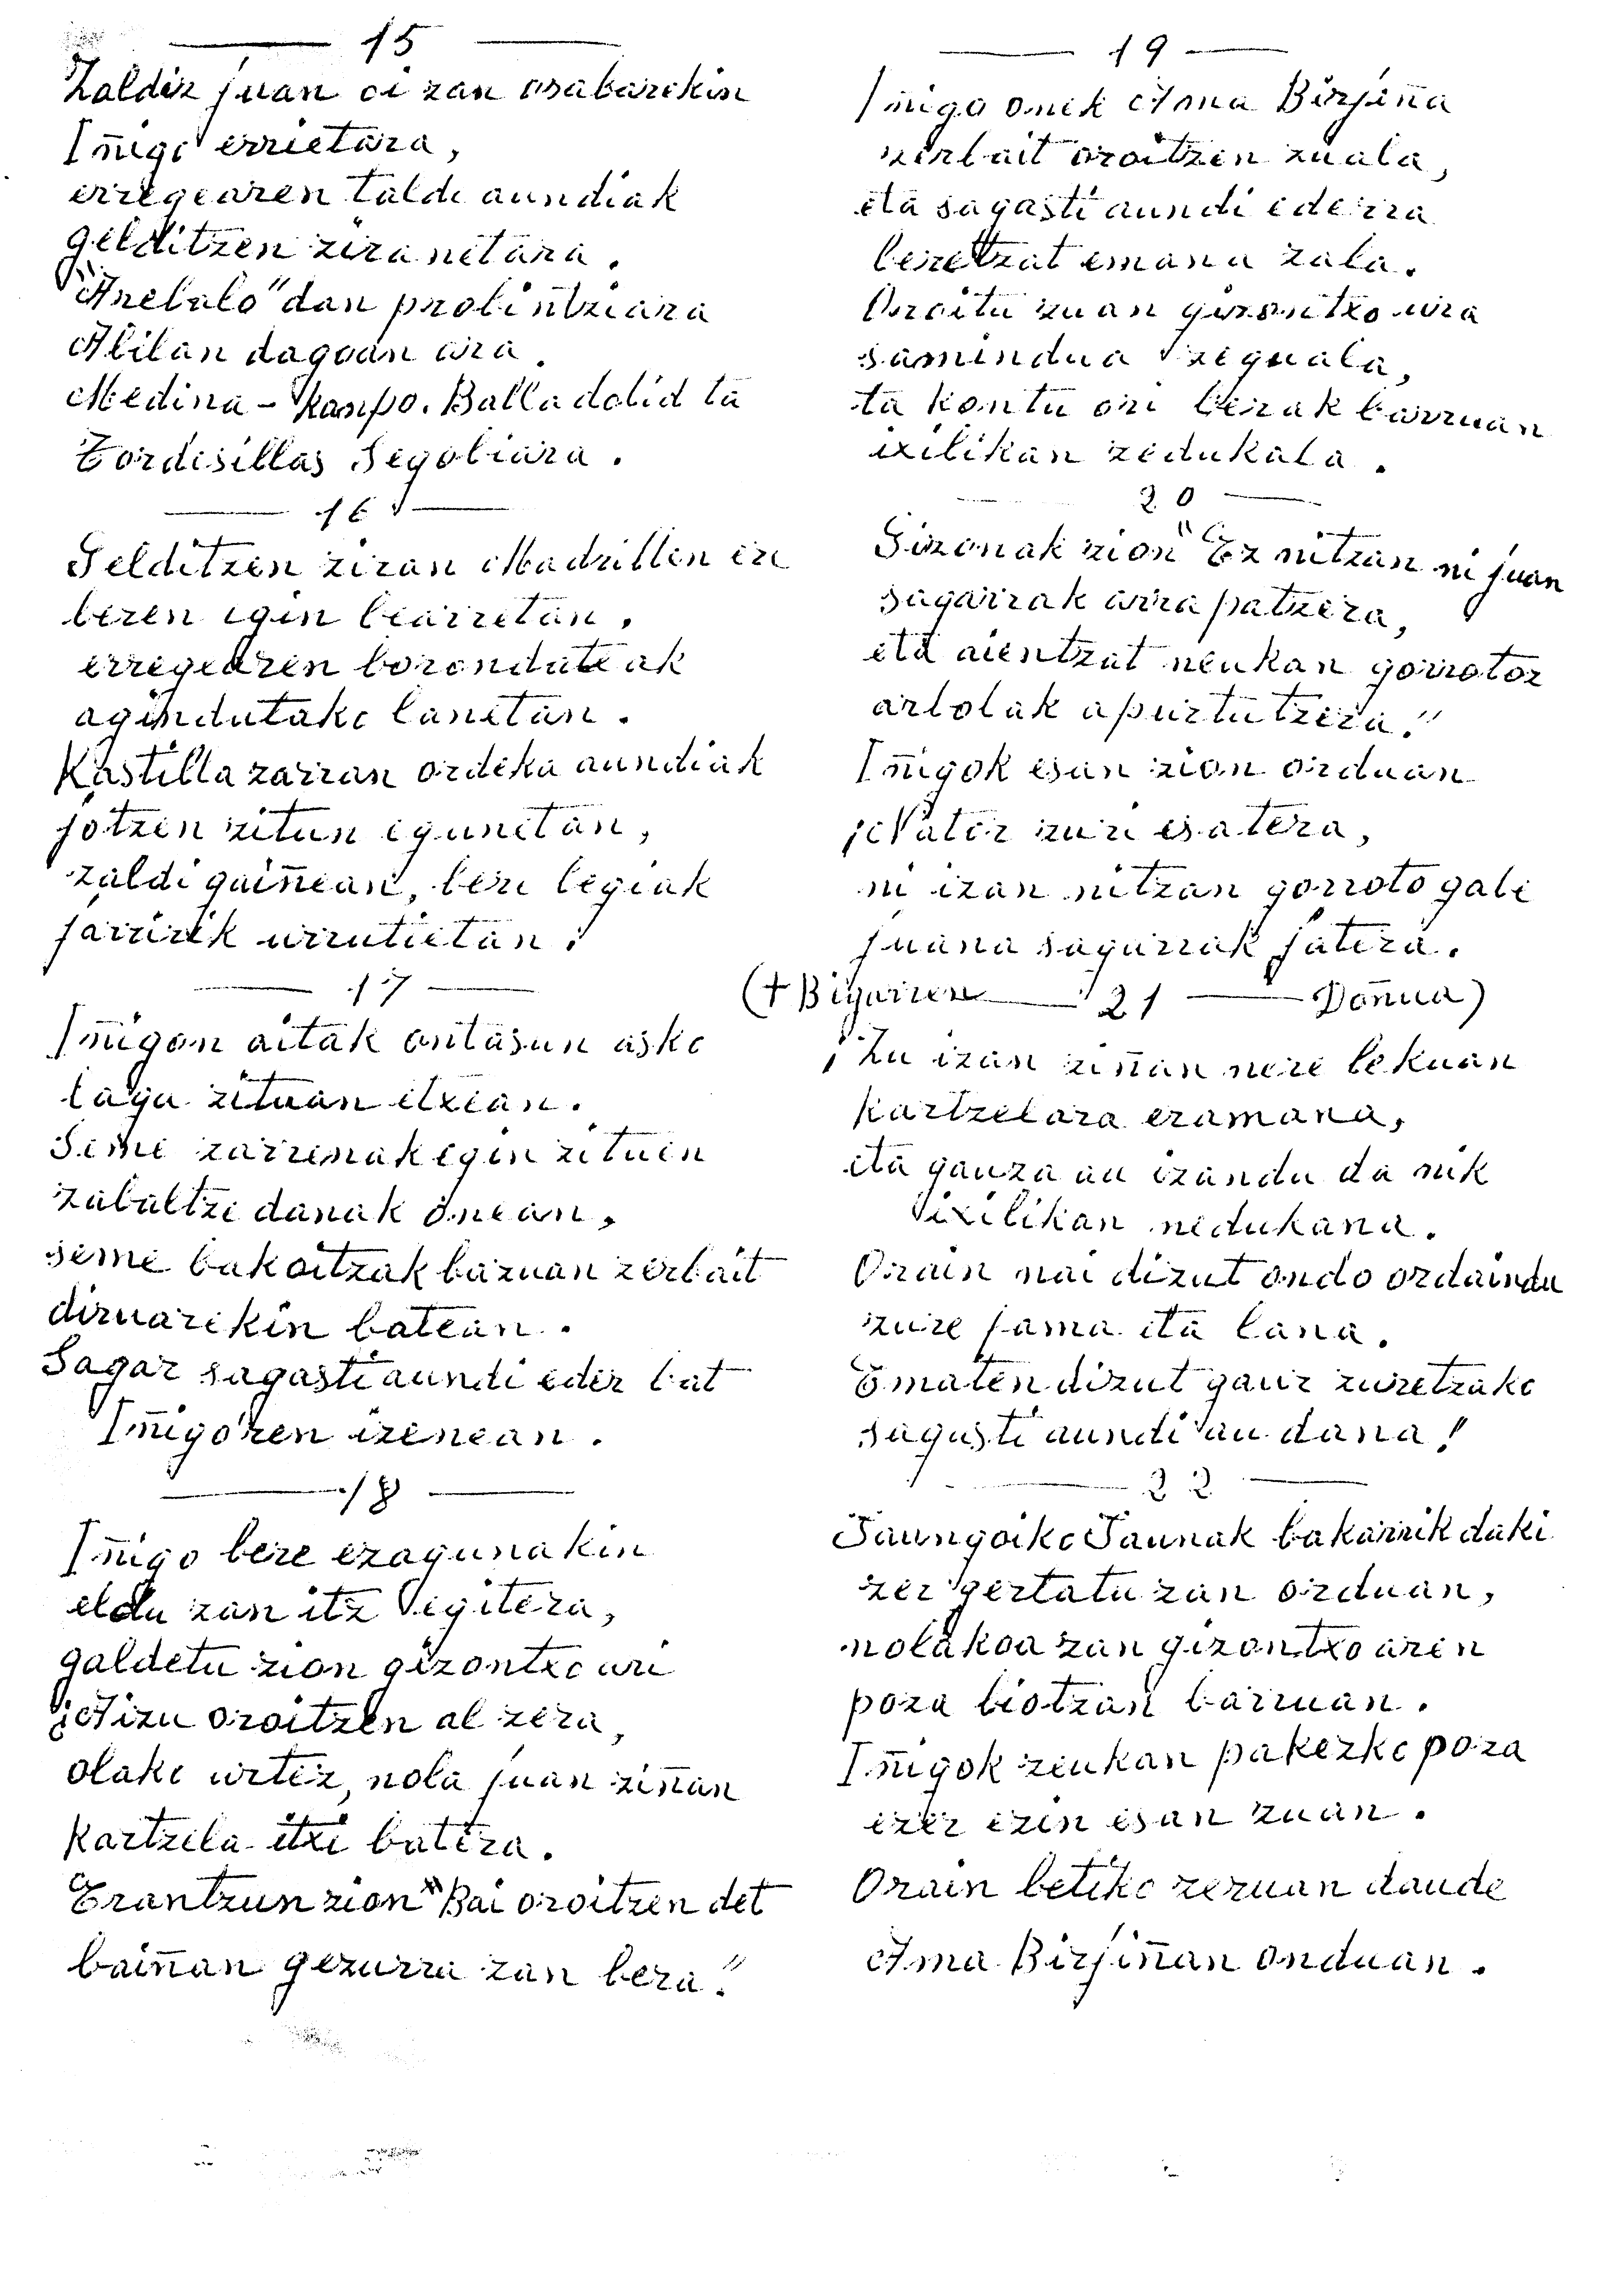 15
Zaldiz juan oi zan osabarekin
Iñigo errietara,
erregearen talde aundiak
gelditzen ziranetara.
"Arebalo" dan probintziara
Abilan dagoan ara.
Medina-Kanpo. Balladolid ta
Tordesillas Segobiara.
16
Gelditzen ziran Madrillen ere
beren egin bearretan,
erregearen borondateak
agindutako lanetan.
Kastilla zarran ordeka aundiak
jotzen zitun egunetan,
zaldi gaiñean, bere begiak
jarririk urrutietan!
17
Iñigon aitak ontasun asko
laga zituan etxean.
Seme zarrenak egin zituen
zabaltze danak onean,
seme bakoitzak bazuan zerbait
diruarekin batean.
Sagar sagasti aundi eder bat
Iñigoren izenean.
18
Iñigo bere ezagunakin
eldu zan itz egitera,
galdetu zion gizontxo ari
¿Aizu oroitzen al zera,
olako urtez, nola juan ziñan
kartzela itxi batera.
Erantzun zion "Bai oroitzen det
baiñan gezurra zan bera."
19
Iñigo onek Ama Birjiña
zerbait oroitzen zuala,
eta sagasti aundi ederra
beretzat emana zala.
Oroitu zuan gizontxo ura
samindua zeguala,
ta kontu ori berak barruan
ixilikan zedukala.
20
Gizonak zion "Ez nitzan ni juan
sagarrak arrapatzera,
eta aientzat neukan gorrotoz
arbolak apurtutzera."
Iñigok esan zion orduan
¡Nator zuri esatera,
ni izan nitzan gorroto gabe
juana sagarrak jatera.
(+ Bigarren 21 Doñua)
¡Zu izan ziñan nere lekuan
kartzelara eramana,
eta gauza au izandu da nik
ixilikan nedukana.
Orain nai dizut ondo ordaindu
zure fama eta lana.
Ematen dizut gaur zuretzako
sagasti aundi au dana!
22
Jaungoiko Jaunak bakarrik daki
zer gertatu zan orduan,
nolakoa zan gizontxo aren
poza biotzan barruan.
Iñigok zeukan pakezko poza
ezer ezin esan zuan.
Orain betiko zeruan daude
Ama Birjiñan onduan.